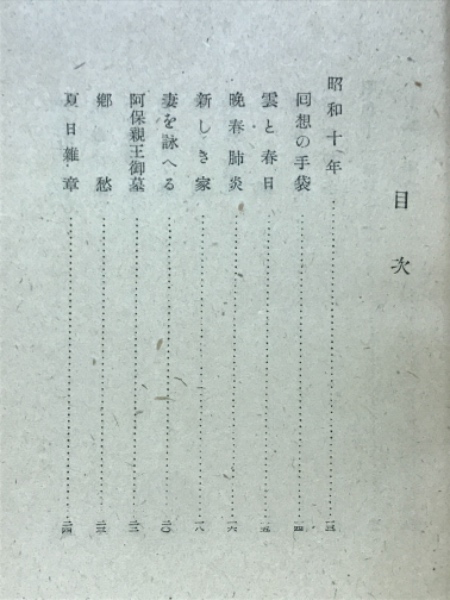 目次
昭和十年……一三
回想の手袋……一四
雲と春日……一五
晩春肺炎……一六
新しき家……一八
妻を詠へる……二〇
阿保親王御墓……二二
鄕愁……二三
夏日雜章……二四